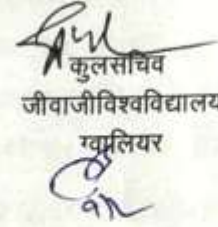 कुलसचिव
जीवाजीविश्वविद्यालय
ग्वालियर